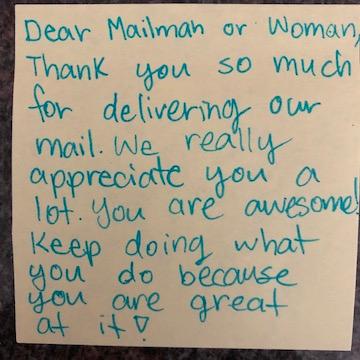 Dear Mailman or Woman,
Thank you so much
for delivering our
mail. We really
appreciate you a
lot. You are awesome!
Keep doing what
you do because
you are great
at it!